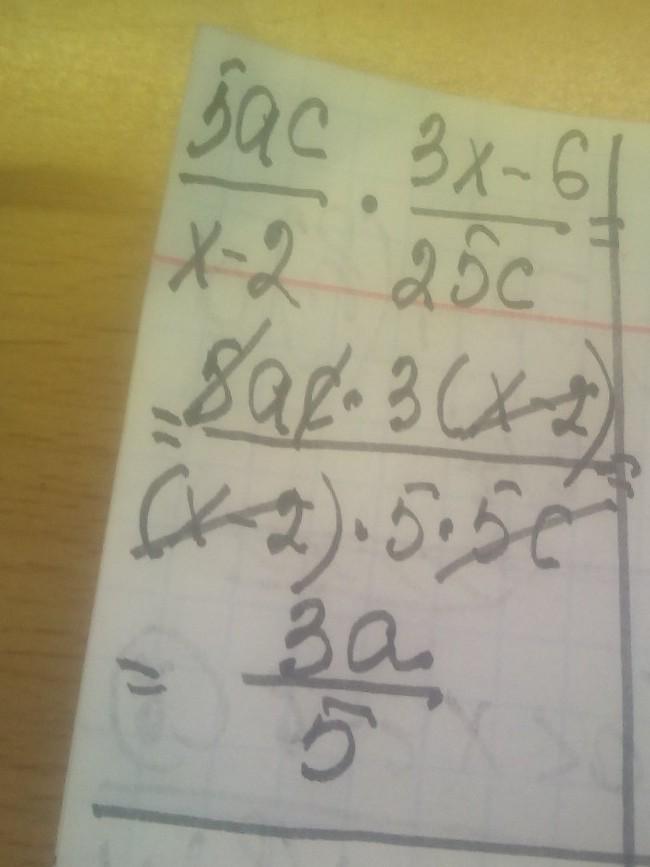 5ac / x-2 · 3x-6 / 25c =
= 5ac · 3(x-2) / (x-2) · 5 · 5c =
= 3a / 5